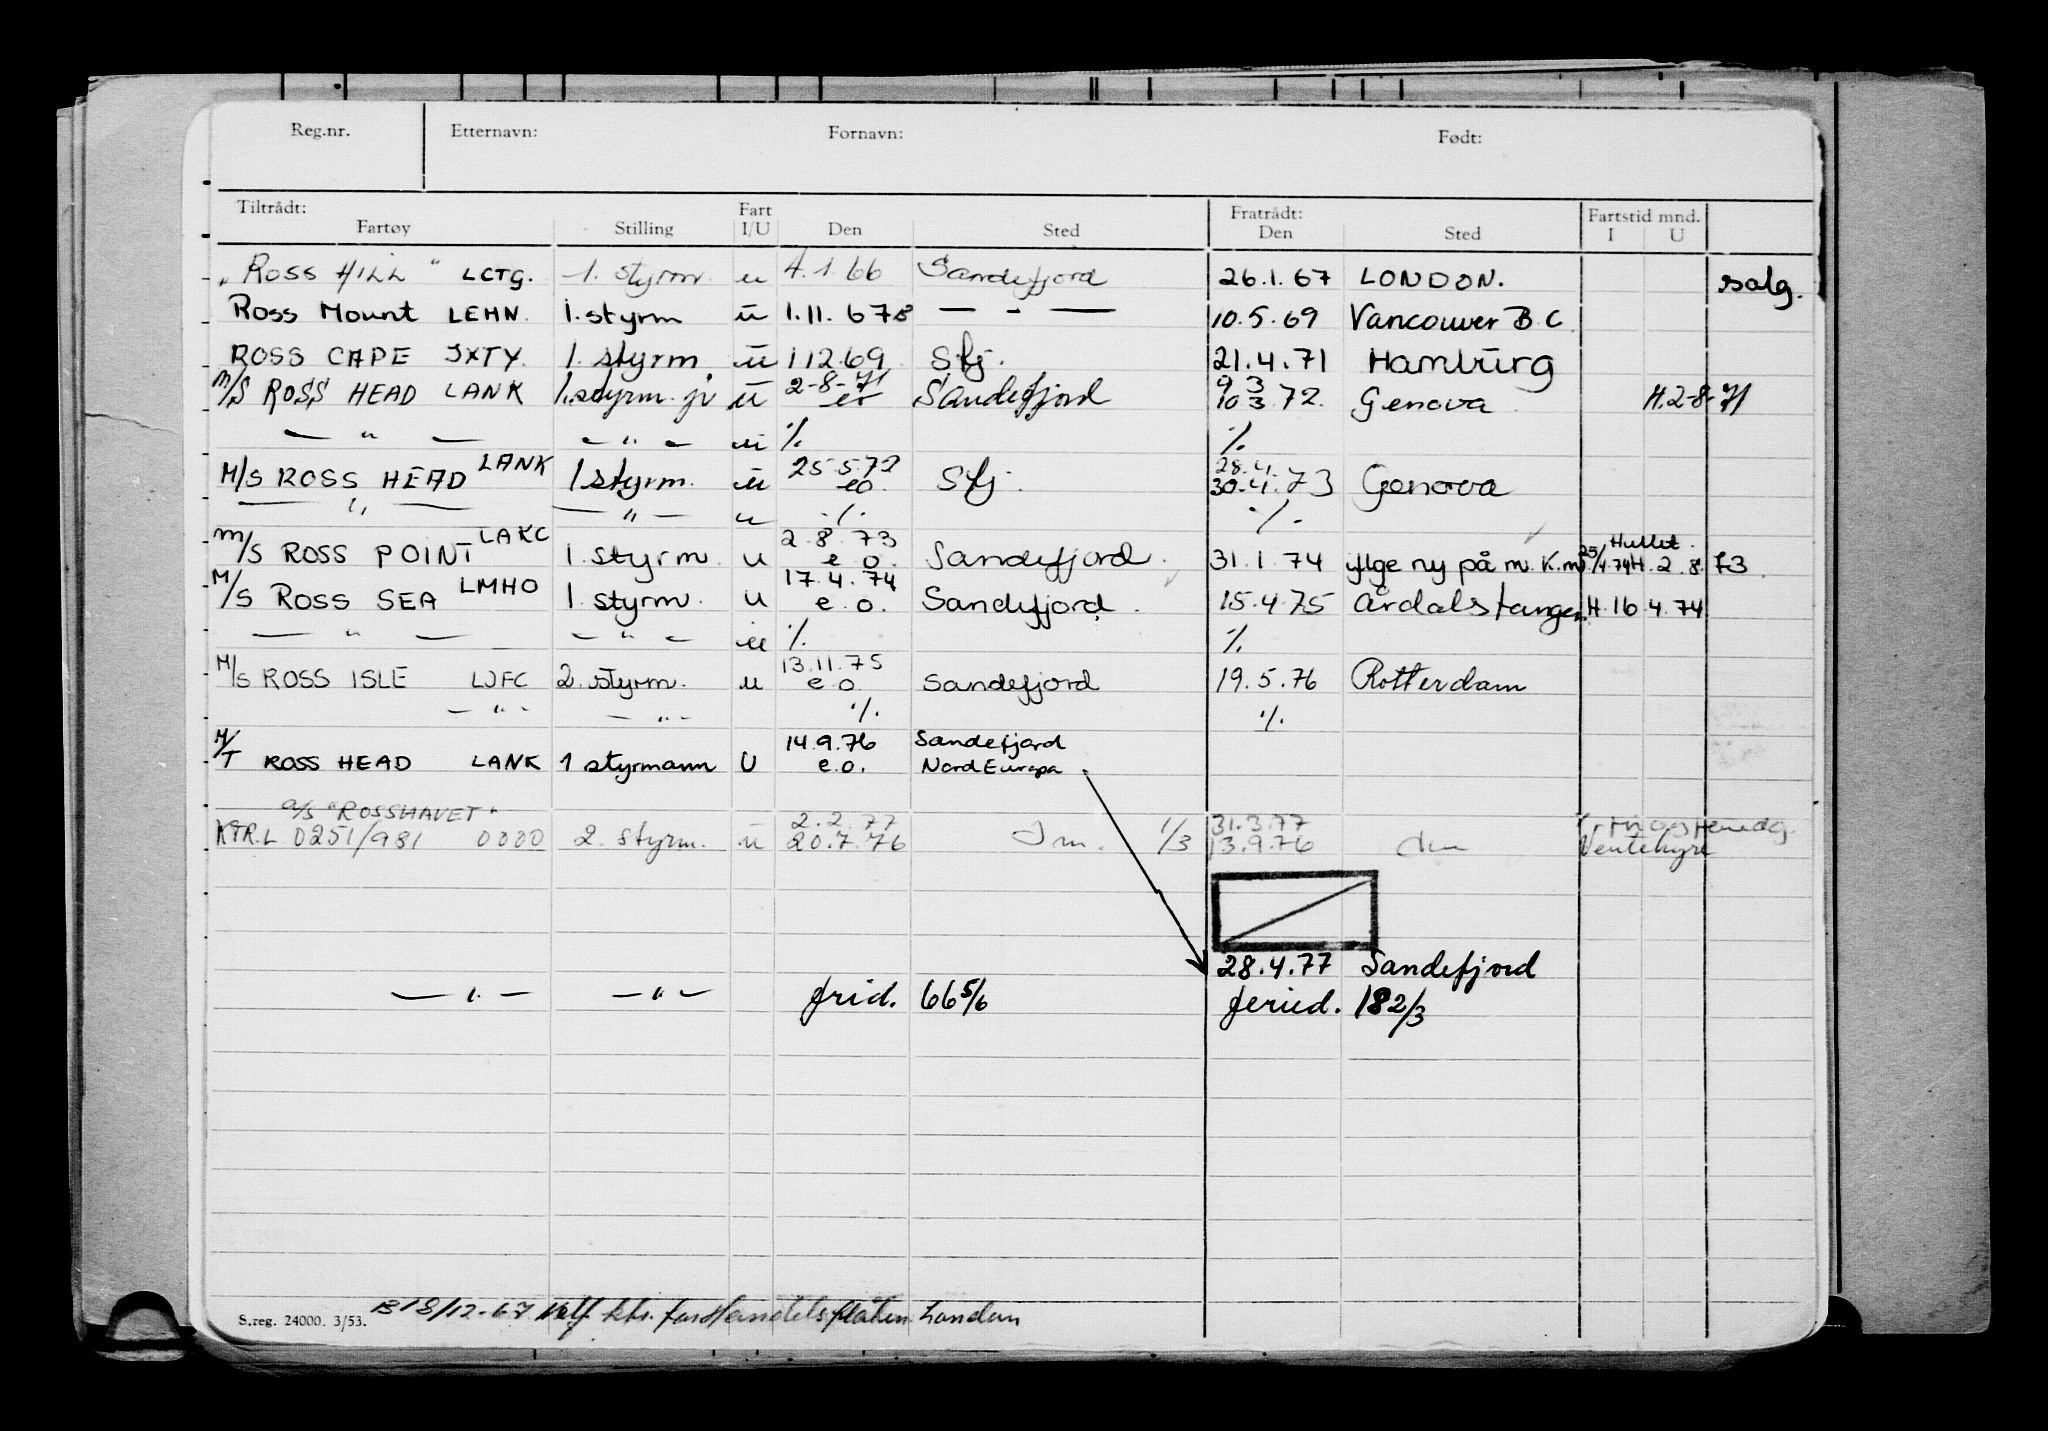 Reg.nr. Etternavn: Fornavn: Født:
Tiltrådt: Fart Fratrådt: Fartstid mnd.
Fartøy Stilling I/U Den Sted Den Sted I U
"ROSS HILL" LCTG. 1. styrm. u 4.1.66 Sandefjord 26.1.67 LONDON. salg.
Ross Mount LEHN. 1. styrm u 1.11.67 — " — 10.5.69 Vancouver B.C
ROSS CAPE JXTY. 1. styrm. u 1 12.69 Sfj. 21.4.71 Hamburg
2-8-71 9 3
M/S ROSS HEAD LANK 1. styrm. jr u eo Sandefjord 10 3.72. Genova H.2-8-71
— " — — " — u % %
LANK 25 5 72 28.4.
M/S ROSS HEAD 1 styrm. u eo. Sfj. 30.4.73 Genova
— " — — " — u % %
LAKC 2.8.73 Hullet.
M/S ROSS POINT 1. styrm. u e.o. Sandefjord. 31.1.74 iflge ny på m. K.m 25/4.74 H.2.8.73
M/S ROSS SEA LMHO 1. styrm. u 17.4.74 e.o. Sandefjord. 15.4.75 Årdalstangen H.16.4.74
— " — — " — u % %
13.11.75
M/S ROSS ISLE LJFC 2. styrm. u e.o. Sandefjord 19.5.76 Rotterdam
— " — — " — % %
14.9.76 Sandefjord
M/T ROSS HEAD LANK 1 styrmann U e.o. Nord Europa
A/S "ROSSHAVET" 2.2.77 31.3.77
KTR.L 0251/981 0000 2. styrm. u 20.7.76 1/3 13.9.76 Ventehyre
28.4.77 Sandefjord
— " — — " — frid. 66 5/6 feried. 18 2/3
S.reg. 24000. 3/53. 18/12-67 ktr. for Handelsflåten London